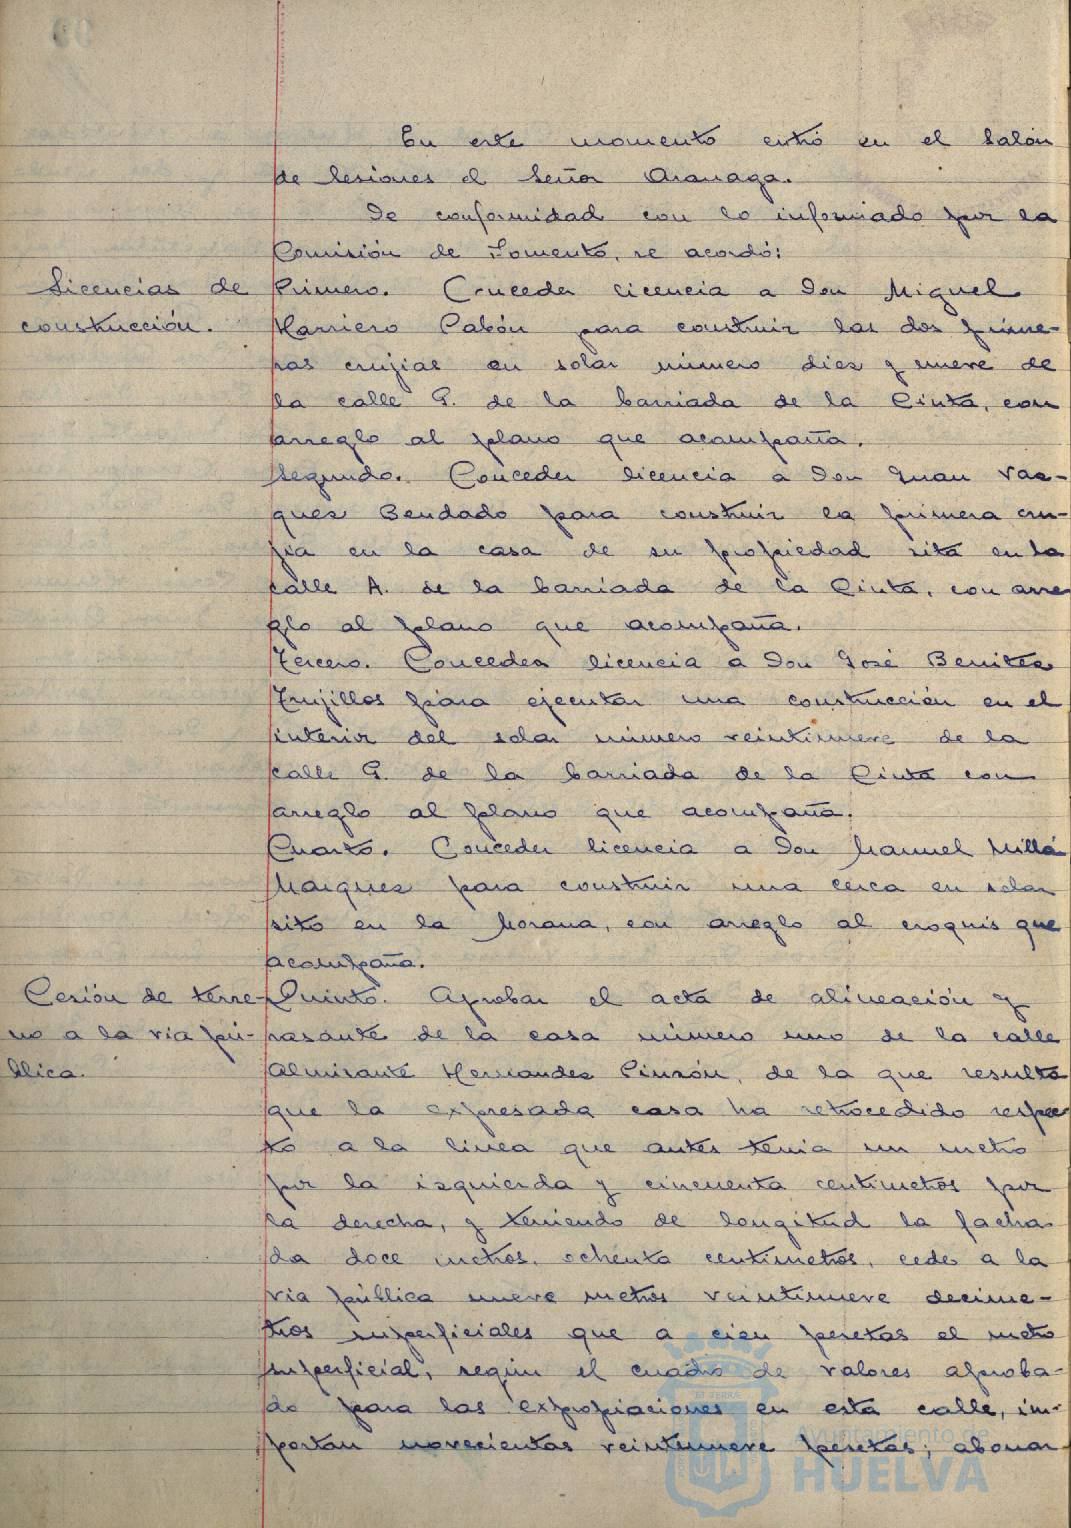 En este momento entró en el Salón
de Sesiones el Señor Aranaga.
De conformidad con lo informado por la
Comisión de Fomento, se acordó:
Licencias de
construcción.
Primero. Conceder licencia a Don Miguel
Marriero Pabón para construir las dos prime-
ras crujias en solar número diez y nueve de
la calle G. de la barriada de la Cinta, con
arreglo al plano que acompaña.
Segundo. Conceder licencia a Don Juan Vaz-
quez Bendado para construir la primera cru-
jia en la casa de su propiedad sita en la
calle A. de la barriada de la Cinta, con arre
glo al plano que acompaña.
Tercero. Conceder licencia a Don José Benitez
Trujillos para ejecutar una construcción en el
interior del solar número veintinueve de la
calle G. de la barriada de la Cinta con
arreglo al plano que acompaña.
Cuarto. Conceder licencia a Don Manuel Millá
Marquez para construir una cerca en solar
sito en la Morana, con arreglo al croquis que
acompaña.
Cesión de terre-
no a la via pú-
blica.
Quinto. Aprobar el acta de alineación y
rasante de la casa número uno de la calle
Almirante Hernandez Pinzón, de la que resulta
que la expresada casa ha retrocedido respec
to a la linea que antes tenia un metro
por la izquierda y cincuenta centimetros por
la derecha, y teniendo de longitud la facha
da doce metros, ochenta centimetros, cede a la
via pública nueve metros veintinueve decime-
tros superficiales que a cien pesetas el metro
superficial, según el cuadro de valores aproba-
do para las expropiaciones en esta calle, im-
portan novecientas veintinueve pesetas; abonar
Ayuntamiento de
HUELVA